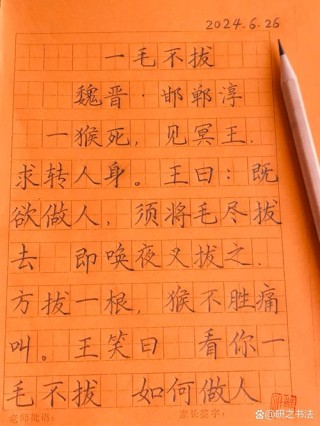 2024.6.26
一毛不拔
魏晋·邯郸淳
一猴死，见冥王，
求转人身。王曰：既
欲做人，须将毛尽拔
去 即唤夜叉拔之，
方拔一根，猴不胜痛
叫。王笑曰 看你一
毛不拔 如何做人
老师批语： 家长签字：
@研之书法